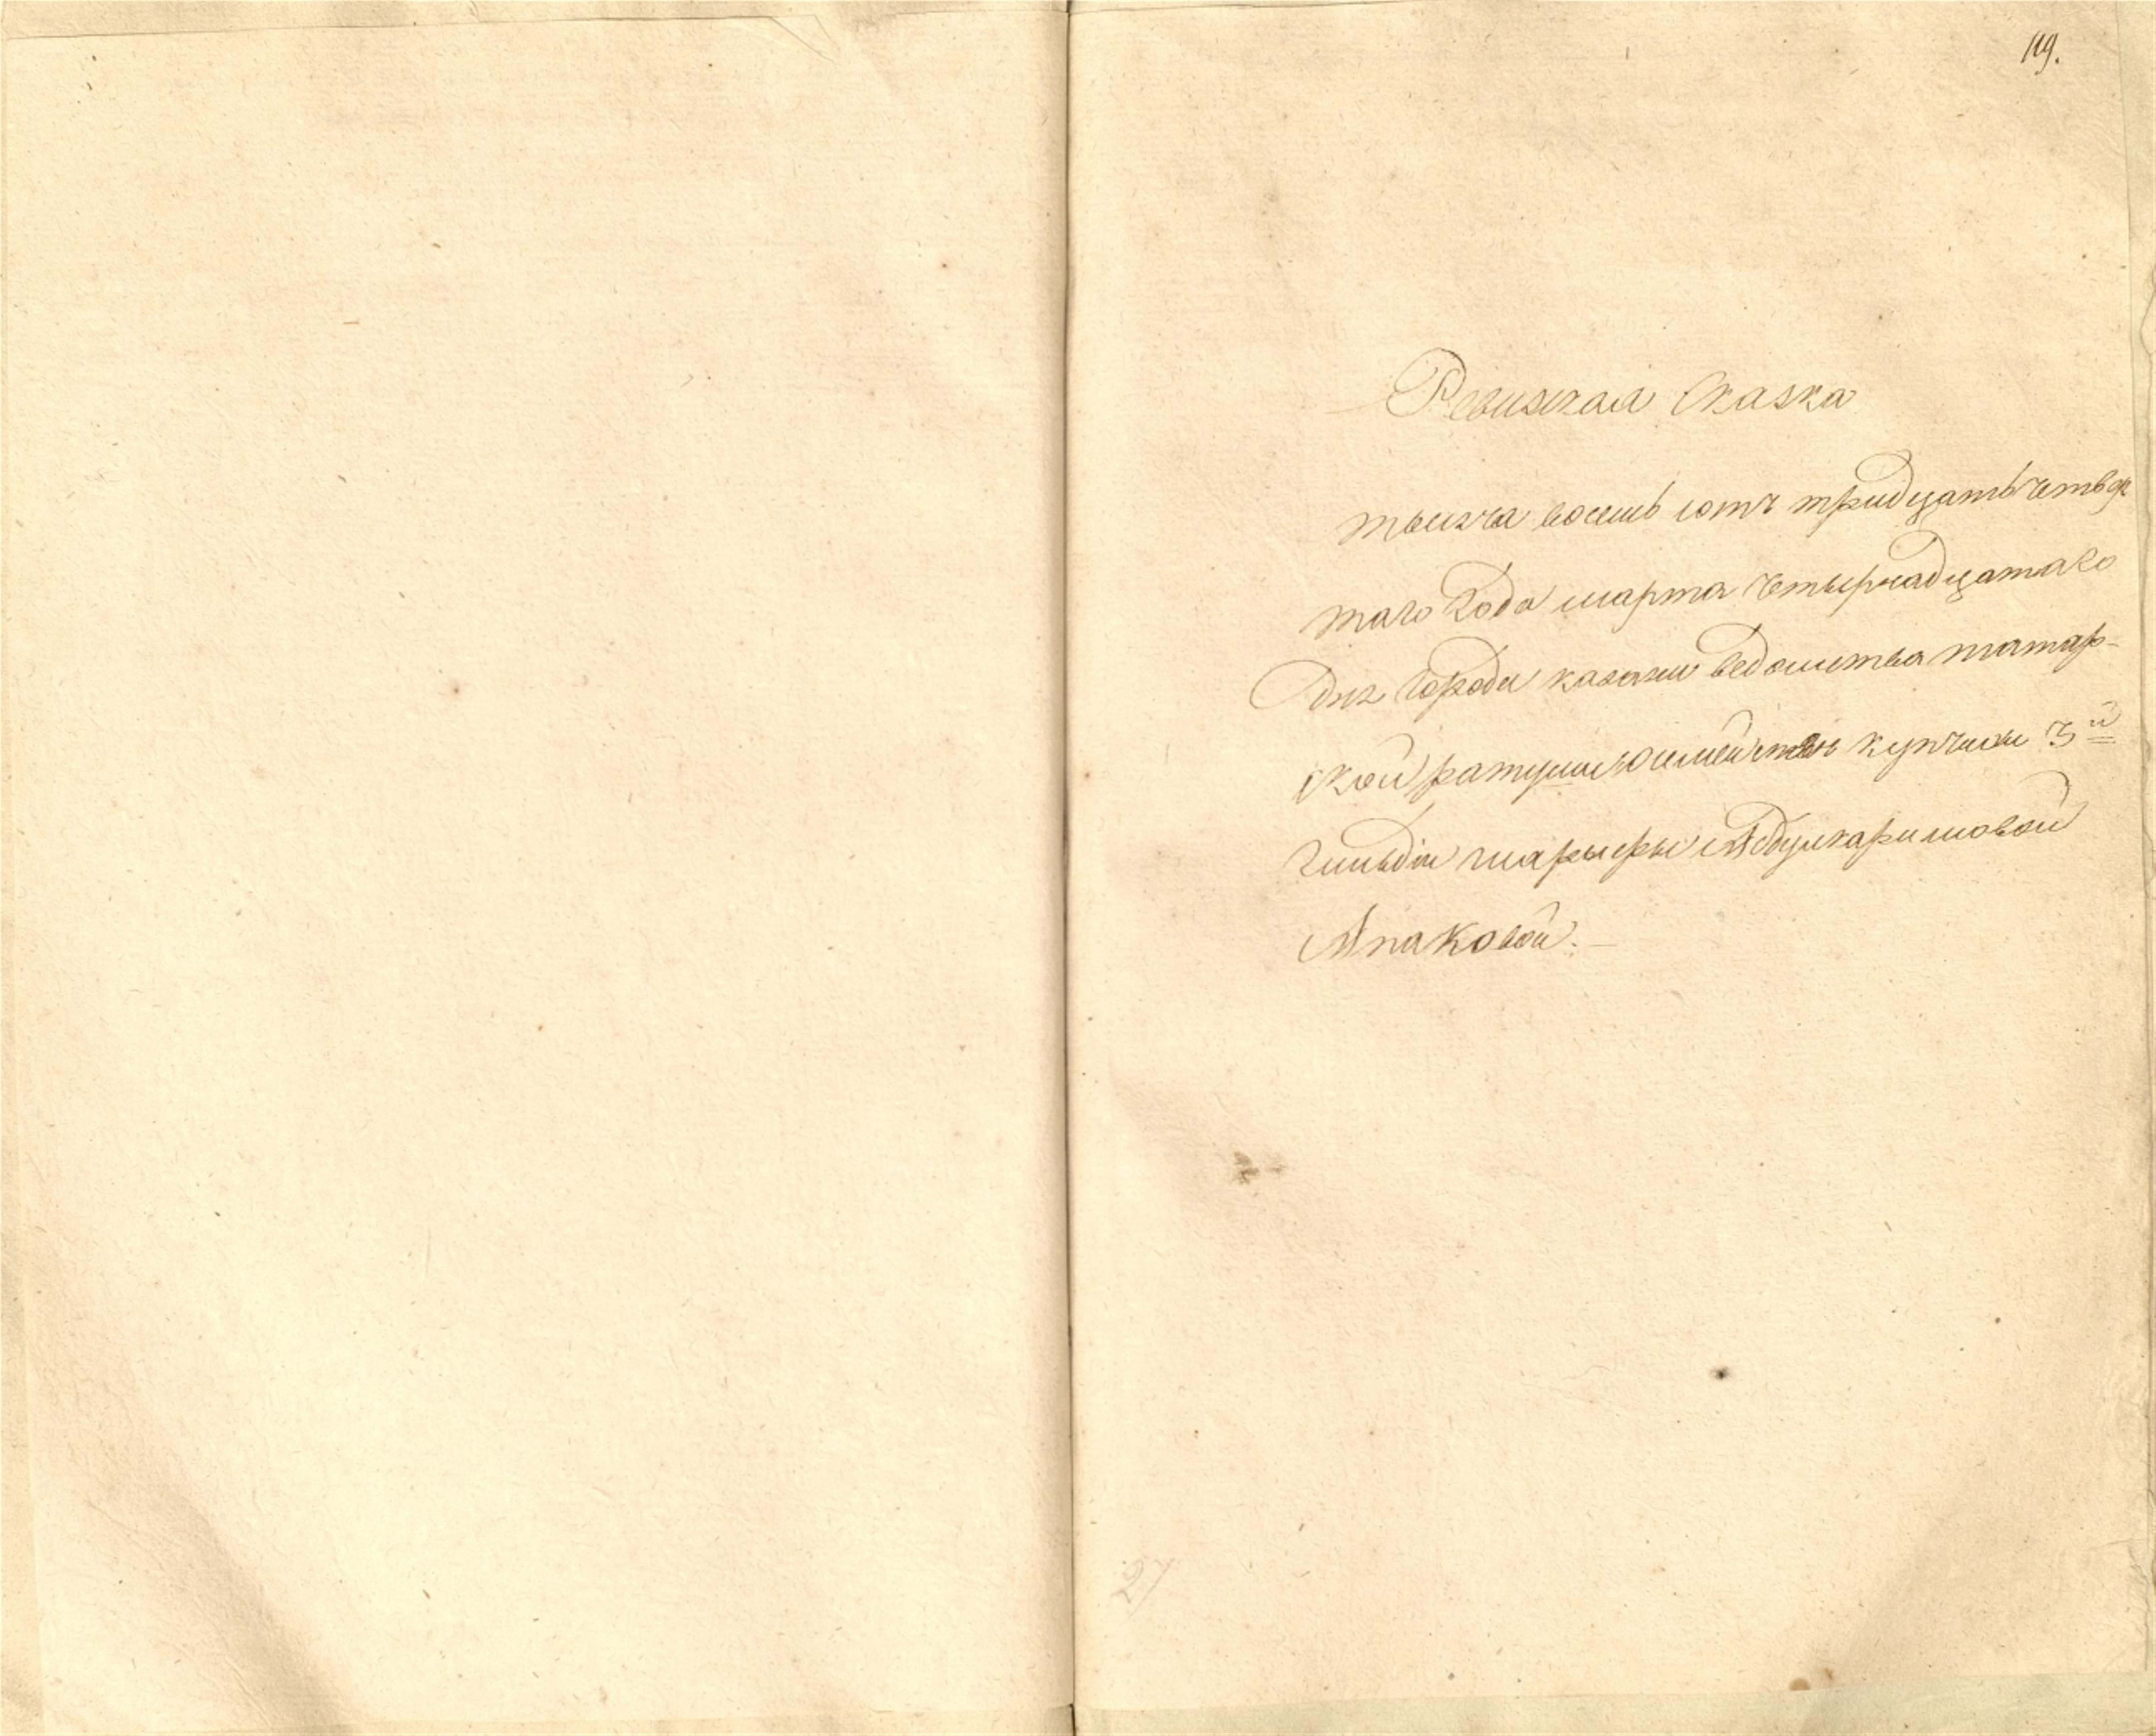 119.
Ревизская Сказка
тысяча восемь сотъ тридцать четвер
таго Года марта четырнадцатаго
дня Города казани ведомства татар-
ской ратуши о семействе купчихи 3й
Гильдіи Абдулкаримовой
Апаковой.
27